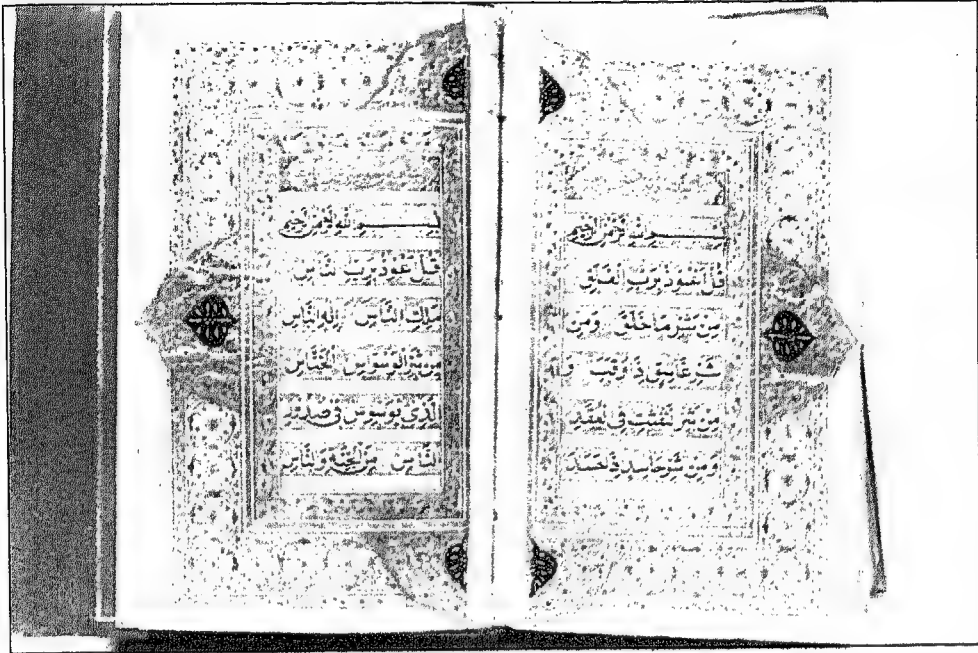 بسم الله الرحمن الرحيم
قل اعوذ برب الفلق
من شر ما خلق ومن
شر غاسق اذا وقب و
من شر النفثت في العقد
ومن شر حاسد اذا حسد
بسم الله الرحمن الرحيم
قل اعوذ برب الناس
ملك الناس اله الناس
من شر الوسواس الخناس
الذي يوسوس في صدور
الناس من الجنة والناس